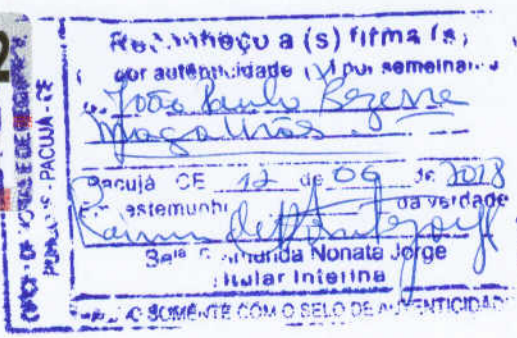 Reconheço a (s) firma (s)
por autenticidade ( ) por semelhan
João Paulo Bezerra
Magalhães
Pacujá CE 12 de 06 de 2018
Em testemunho da verdade
Belª Raimunda Nonata Jorge
Titular Interina
SOMENTE COM O SELO DE AUTENTICIDADE
PACUJA - CE
2